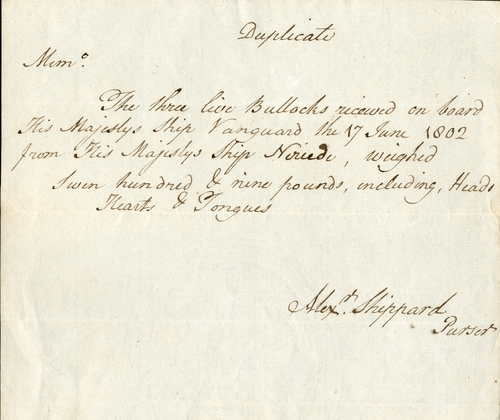 Duplicate
Memo.
The three live Bullocks received on board
His Majestys Ship Vanguard the 17 June 1802
from His Majestys Ship Nereide, weighed
Seven hundred & nine pounds, including, Heads
Hearts & Tongues
Alexr. Sheppard
Purser